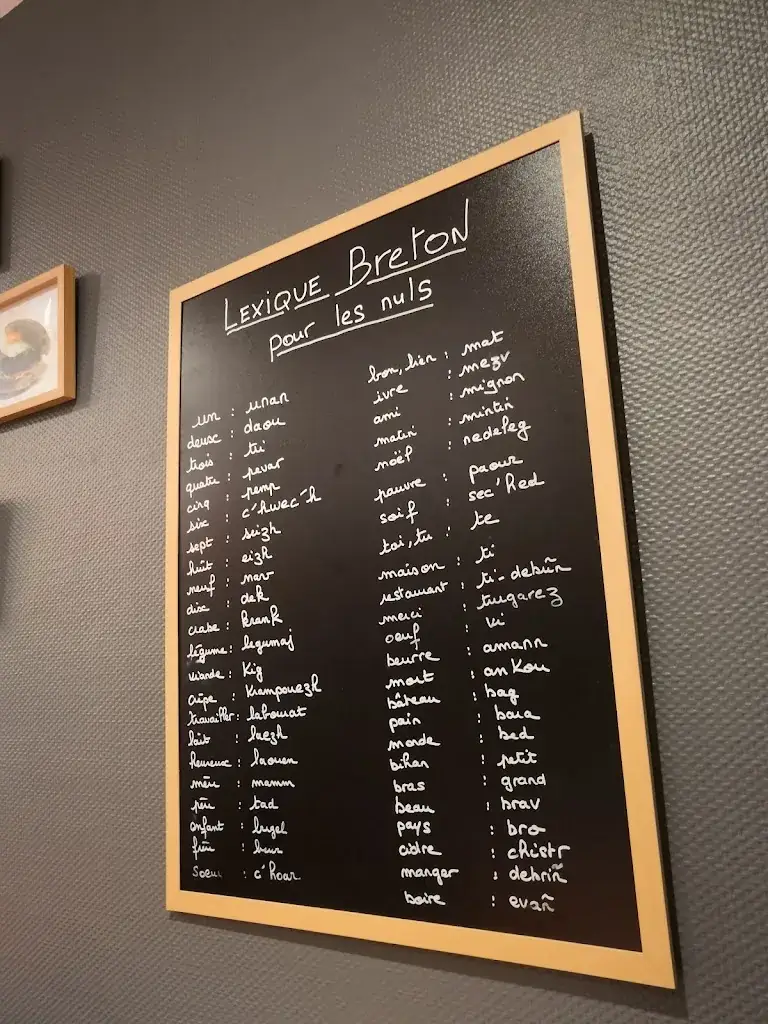 LEXIQUE BRETON
pour les nuls
un : unan
deux : daou
trois : tri
quatre : pevar
cinq : pemp
six : c'hwec'h
sept : seizh
huit : eizh
neuf : nav
dix : dek
crabe : krank
légume : legumaj
viande : Kig
crêpe : Krampouezh
travailler : labourat
lait : laezh
heureux : laouen
mère : mamm
père : tad
enfant : bugel
frère : breur
soeur : c'hoar
bon, bien : mat
ivre : mezv
ami : mignon
matin : mintin
noël : nedeleg
pauvre : paour
soif : sec'hed
toi, tu : te
maison : ti
restaurant : ti-debriñ
merci : trugarez
oeuf : vi
beurre : amann
mort : an Kou
bâteau : bag
pain : bara
monde : bed
bihan : petit
bras : grand
beau : brav
pays : bro
cidre : chistr
manger : debriñ
boire : evañ